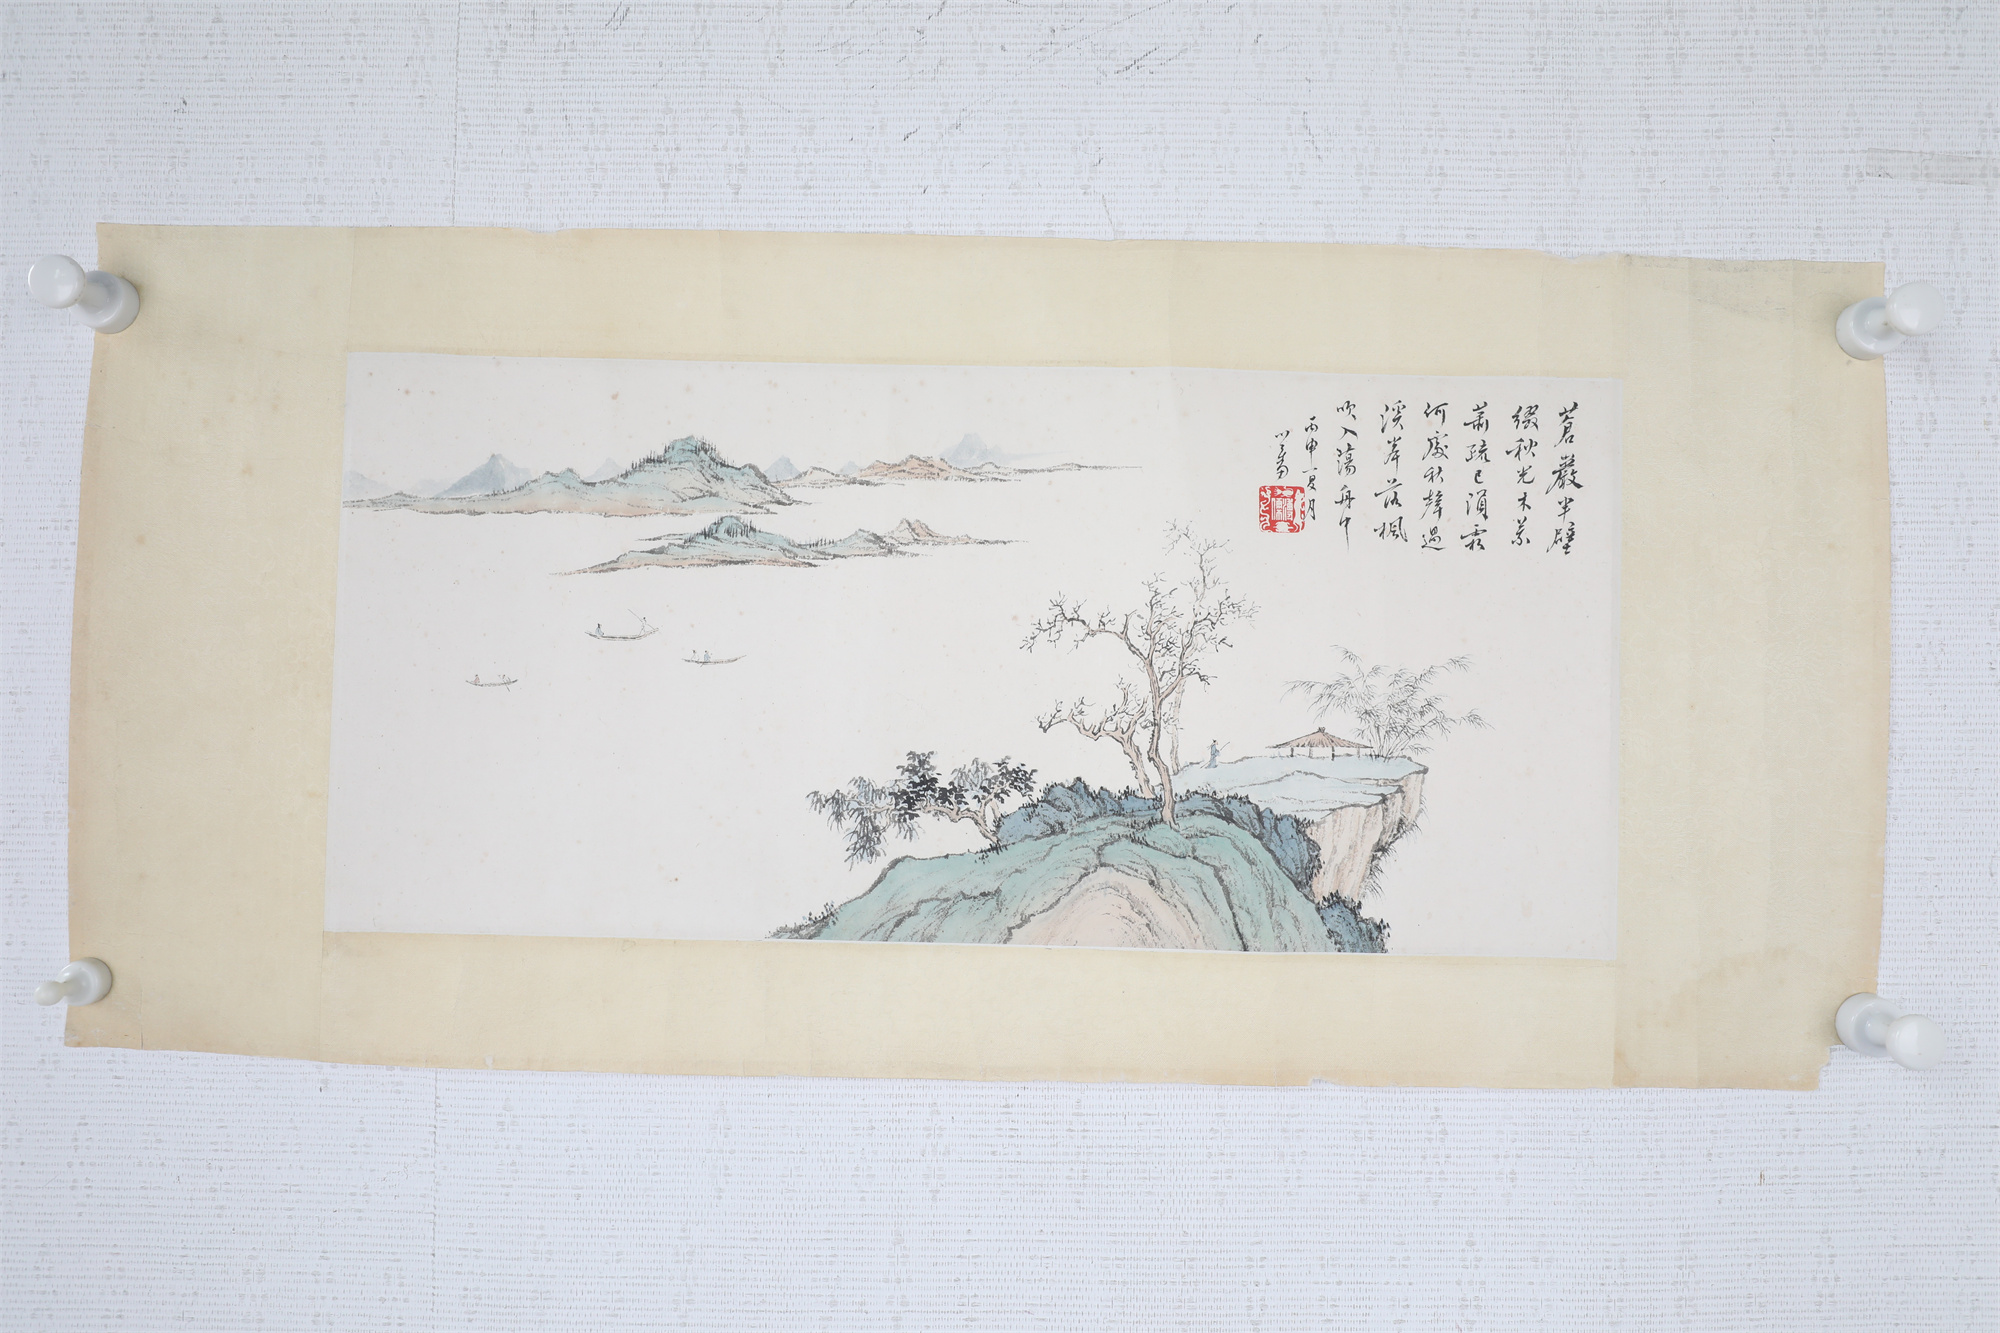 蒼巖半壁
綴秋光木葉
蕭疏已須霜
何處秋聲過
溪岸落楓
吹入蕩舟中
丙申夏月
心畬